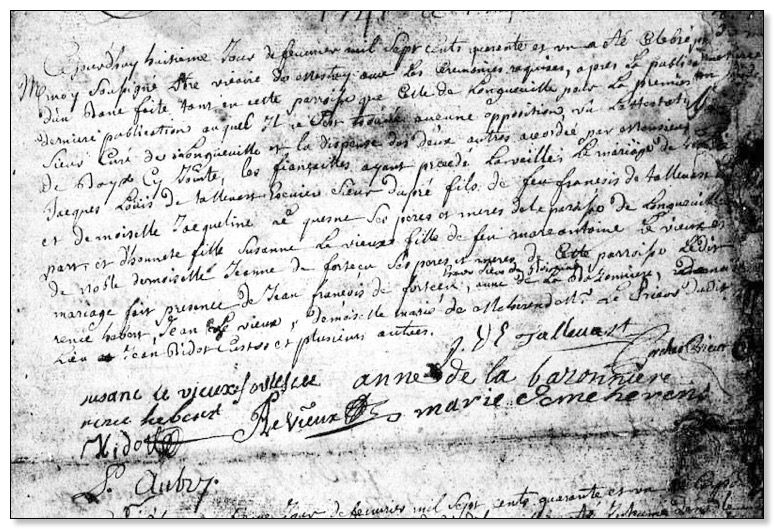 Cejourdhuy huitieme Jour de feuvrier mil Sept cents quarente et un a été Celebré par
Moy Soussigné Ptre vicaire de avec les Ceremonies requises, apres la publication
d'un banc faite tant en cette parroisse que Celle de Longueuille pour la premiere et
derniere publication auquel Il ne s'est trouvé aucune opposition vu Lattestat
Sieur Curé de Longueuille et la dispense des deux autres acordée par Monsieur
De Bayx Cy Jointe, les fiançailles ayant precedé La veille, le mariage de
Jacques Louis de tallevast Escuier Sieur Dupré fils de feu françois de tallevast
et demoiselle Jacqueline le quesne Ses peres et meres de la parroisse de Longueuille
part et d'honnete fille Susanne Le vieux fille de feu marc antoine Le vieux et
de noble demoiselle Jeanne de fortecu Ses peres et meres de Cette parroisse Ledit
mariage fait presence de Jean françois de fortecu, anne de La Bazonniere,
renée hebert, Jean Le vieux, demoiselle marie de Le Prieur dudit
Lieu et Jean Ridot Custos et plusieurs autres.
J. L. Tallevast
Prieur
susane le vieux fortescu anne de la baronnière
renee hebert Le Vieux marie
Ridot
P. Aubry.
Jour de feuvrier mil Sept cents quarante et un